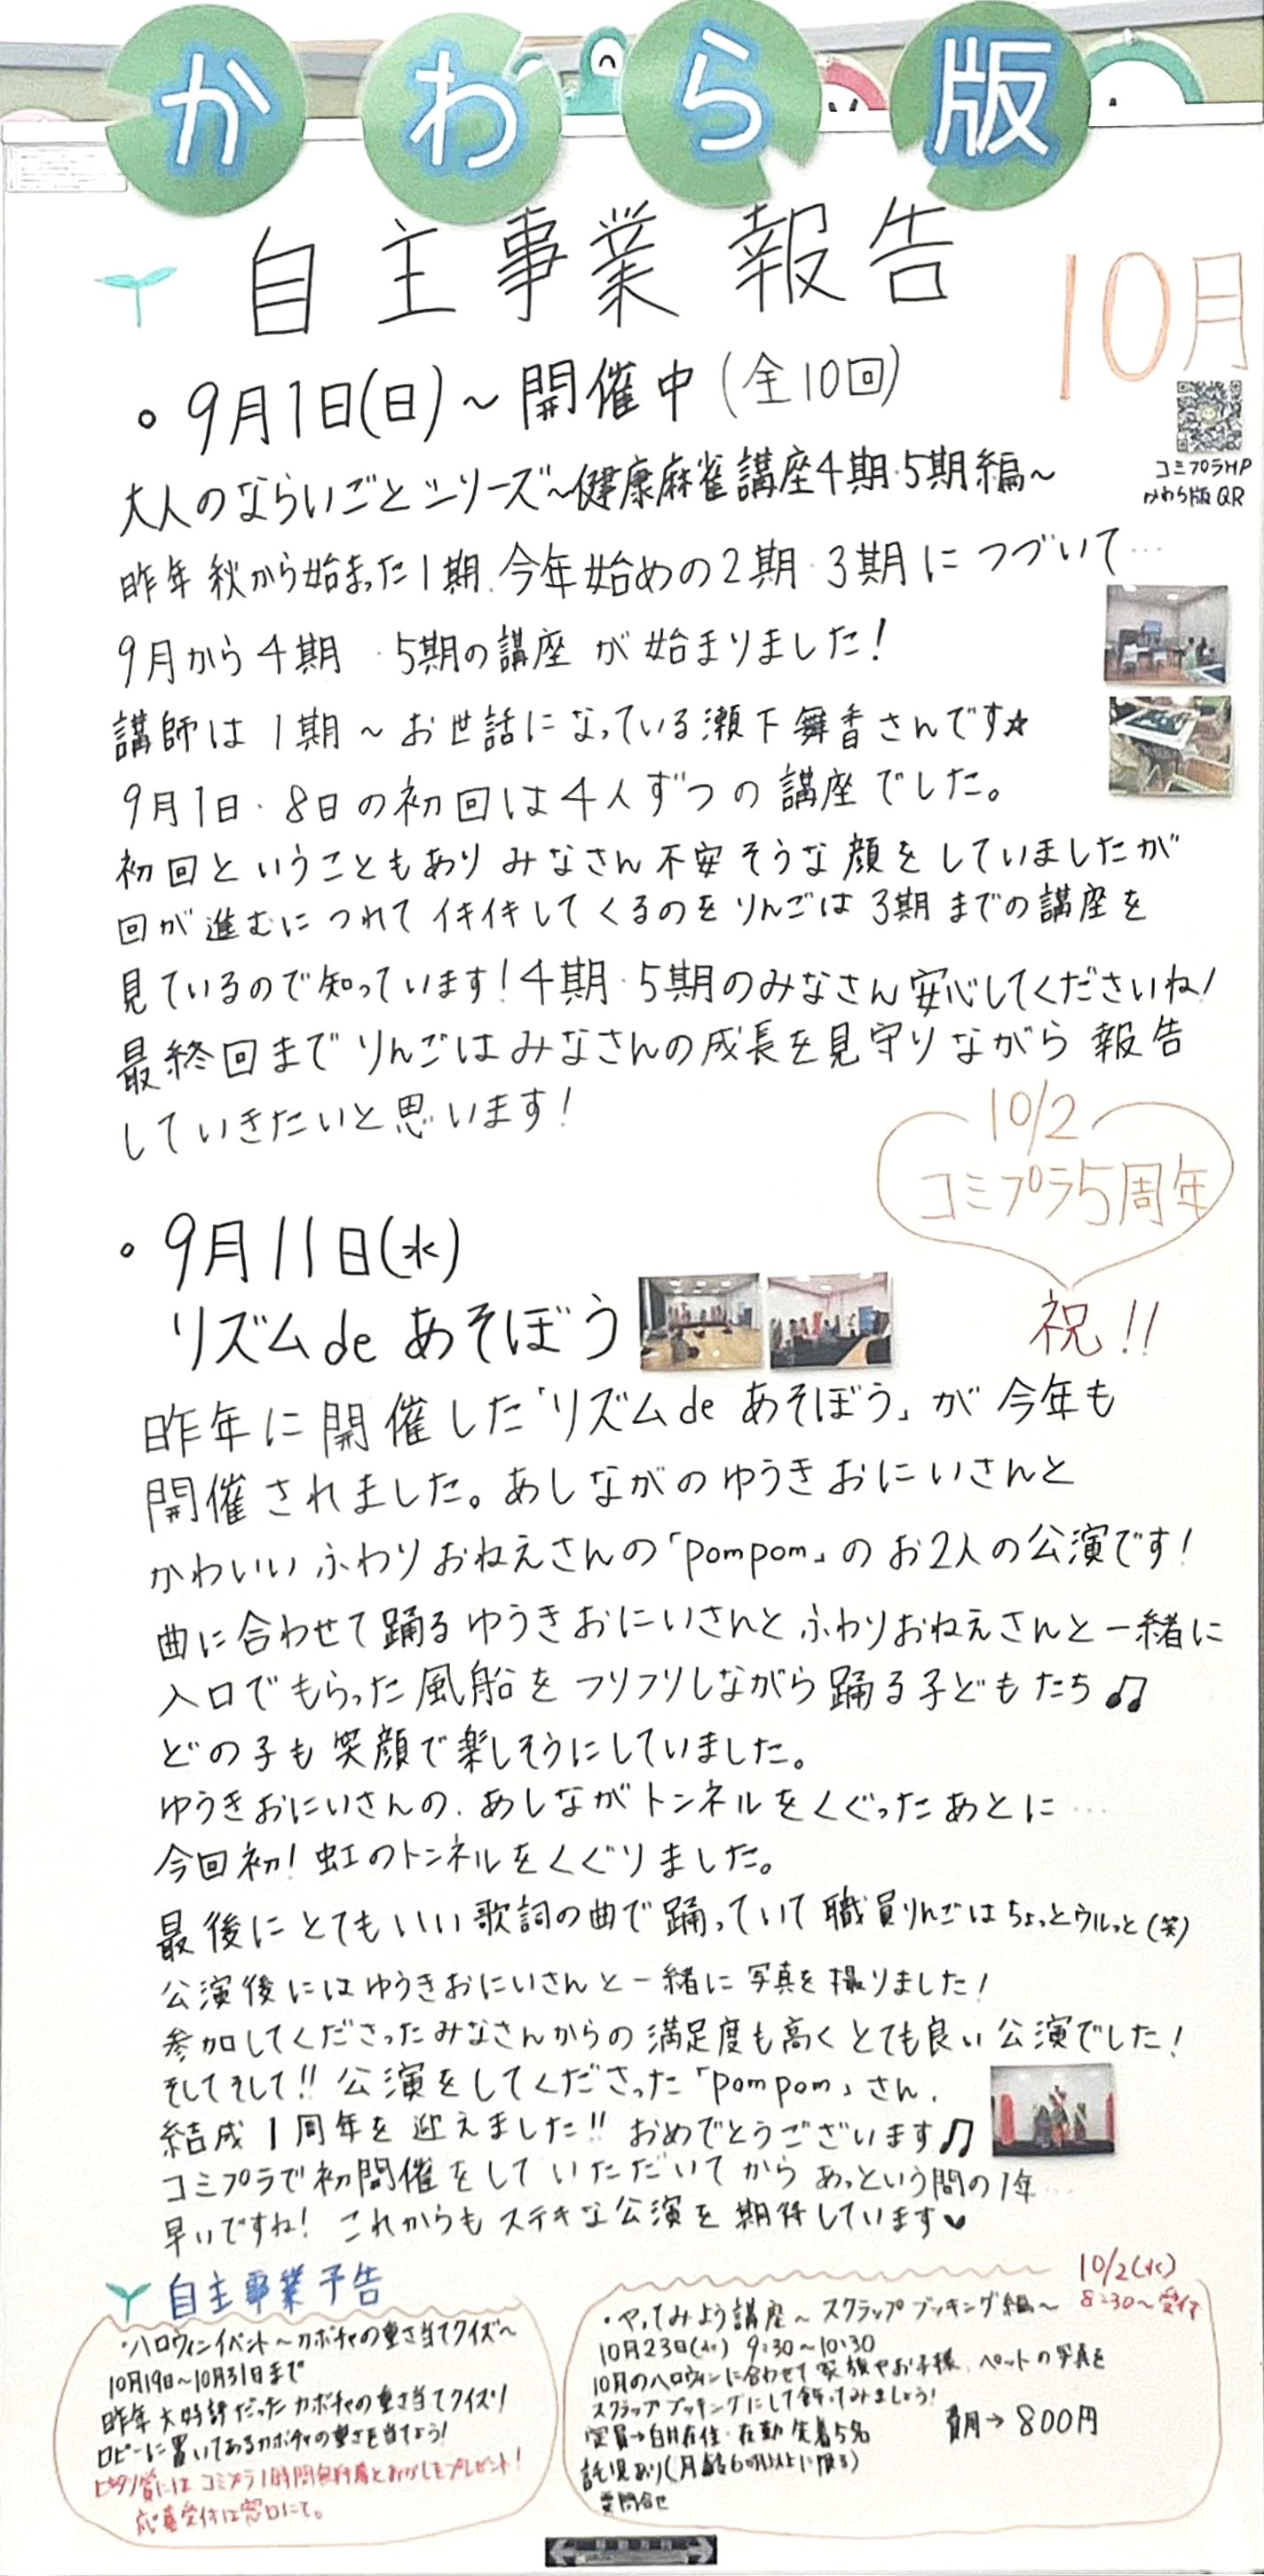 かわら版
自主事業報告
10月
コミプラHP
かわら版QR
・9月1日(日)～開催中(全10回)
大人のならいごとシリーズ～健康麻雀講座4期・5期編～
昨年秋から始まった1期、今年始めの2期・3期につづいて…
9月から4期・5期の講座が始まりました!
講師は1期～お世話になっている瀬下舞香さんです☆
9月1日・8日の初回は4人ずつの講座でした。
初回ということもありみなさん不安そうな顔をしていましたが
回が進むにつれてイキイキしてくるのをりんごは3期までの講座を
見ているので知っています!4期・5期のみなさん安心してくださいね!
最終回までりんごはみなさんの成長を見守りながら報告
していきたいと思います!
10/2
コミプラ5周年
祝!!
・9月11日(水)
リズムdeあそぼう
昨年に開催した「リズムdeあそぼう」が今年も
開催されました。あしながのゆうきおにいさんと
かわいいふわりおねえさんの「pompom」のお2人の公演です!
曲に合わせて踊るゆうきおにいさんとふわりおねえさんと一緒に
入口でもらった風船をフリフリしながら踊る子どもたち♫
どの子も笑顔で楽しそうにしていました。
ゆうきおにいさんの、あしながトンネルをくぐったあとに…
今回初!虹のトンネルをくぐりました。
最後にとてもいい歌詞の曲で踊っていて職員りんごはちょっとウルっと(笑)
公演後にはゆうきおにいさんと一緒に写真を撮りました!
参加してくださったみなさんからの満足度も高くとても良い公演でした!
そしてそして!!公演をしてくださった「pompom」さん、
結成1周年を迎えました!!おめでとうございます♫
コミプラで初開催をしていただいてからあっという間の1年…
早いですね!これからもステキな公演を期待しています♥
自主事業予告
・ハロウィンイベント～カボチャの重さ当てクイズ～
10月19日～10月31日まで
昨年大好評だったカボチャの重さ当てクイズ!
ロビーに置いてあるカボチャの重さを当てよう!
ピタリ賞にはコミプラ1時間無料券とおかしをプレゼント!
応募受付は窓口にて。
10/2(水)
8:30～受付
・やってみよう講座～スクラップブッキング編～
10月23日(水) 9:30～10:30
10月のハロウィンに合わせて家族やお子様、ペットの写真を
スクラップブッキングにして飾ってみましょう!
定員→白井在住・在勤先着5名
費用→800円
託児あり(月齢6ヶ月以上に限る)
要問合せ